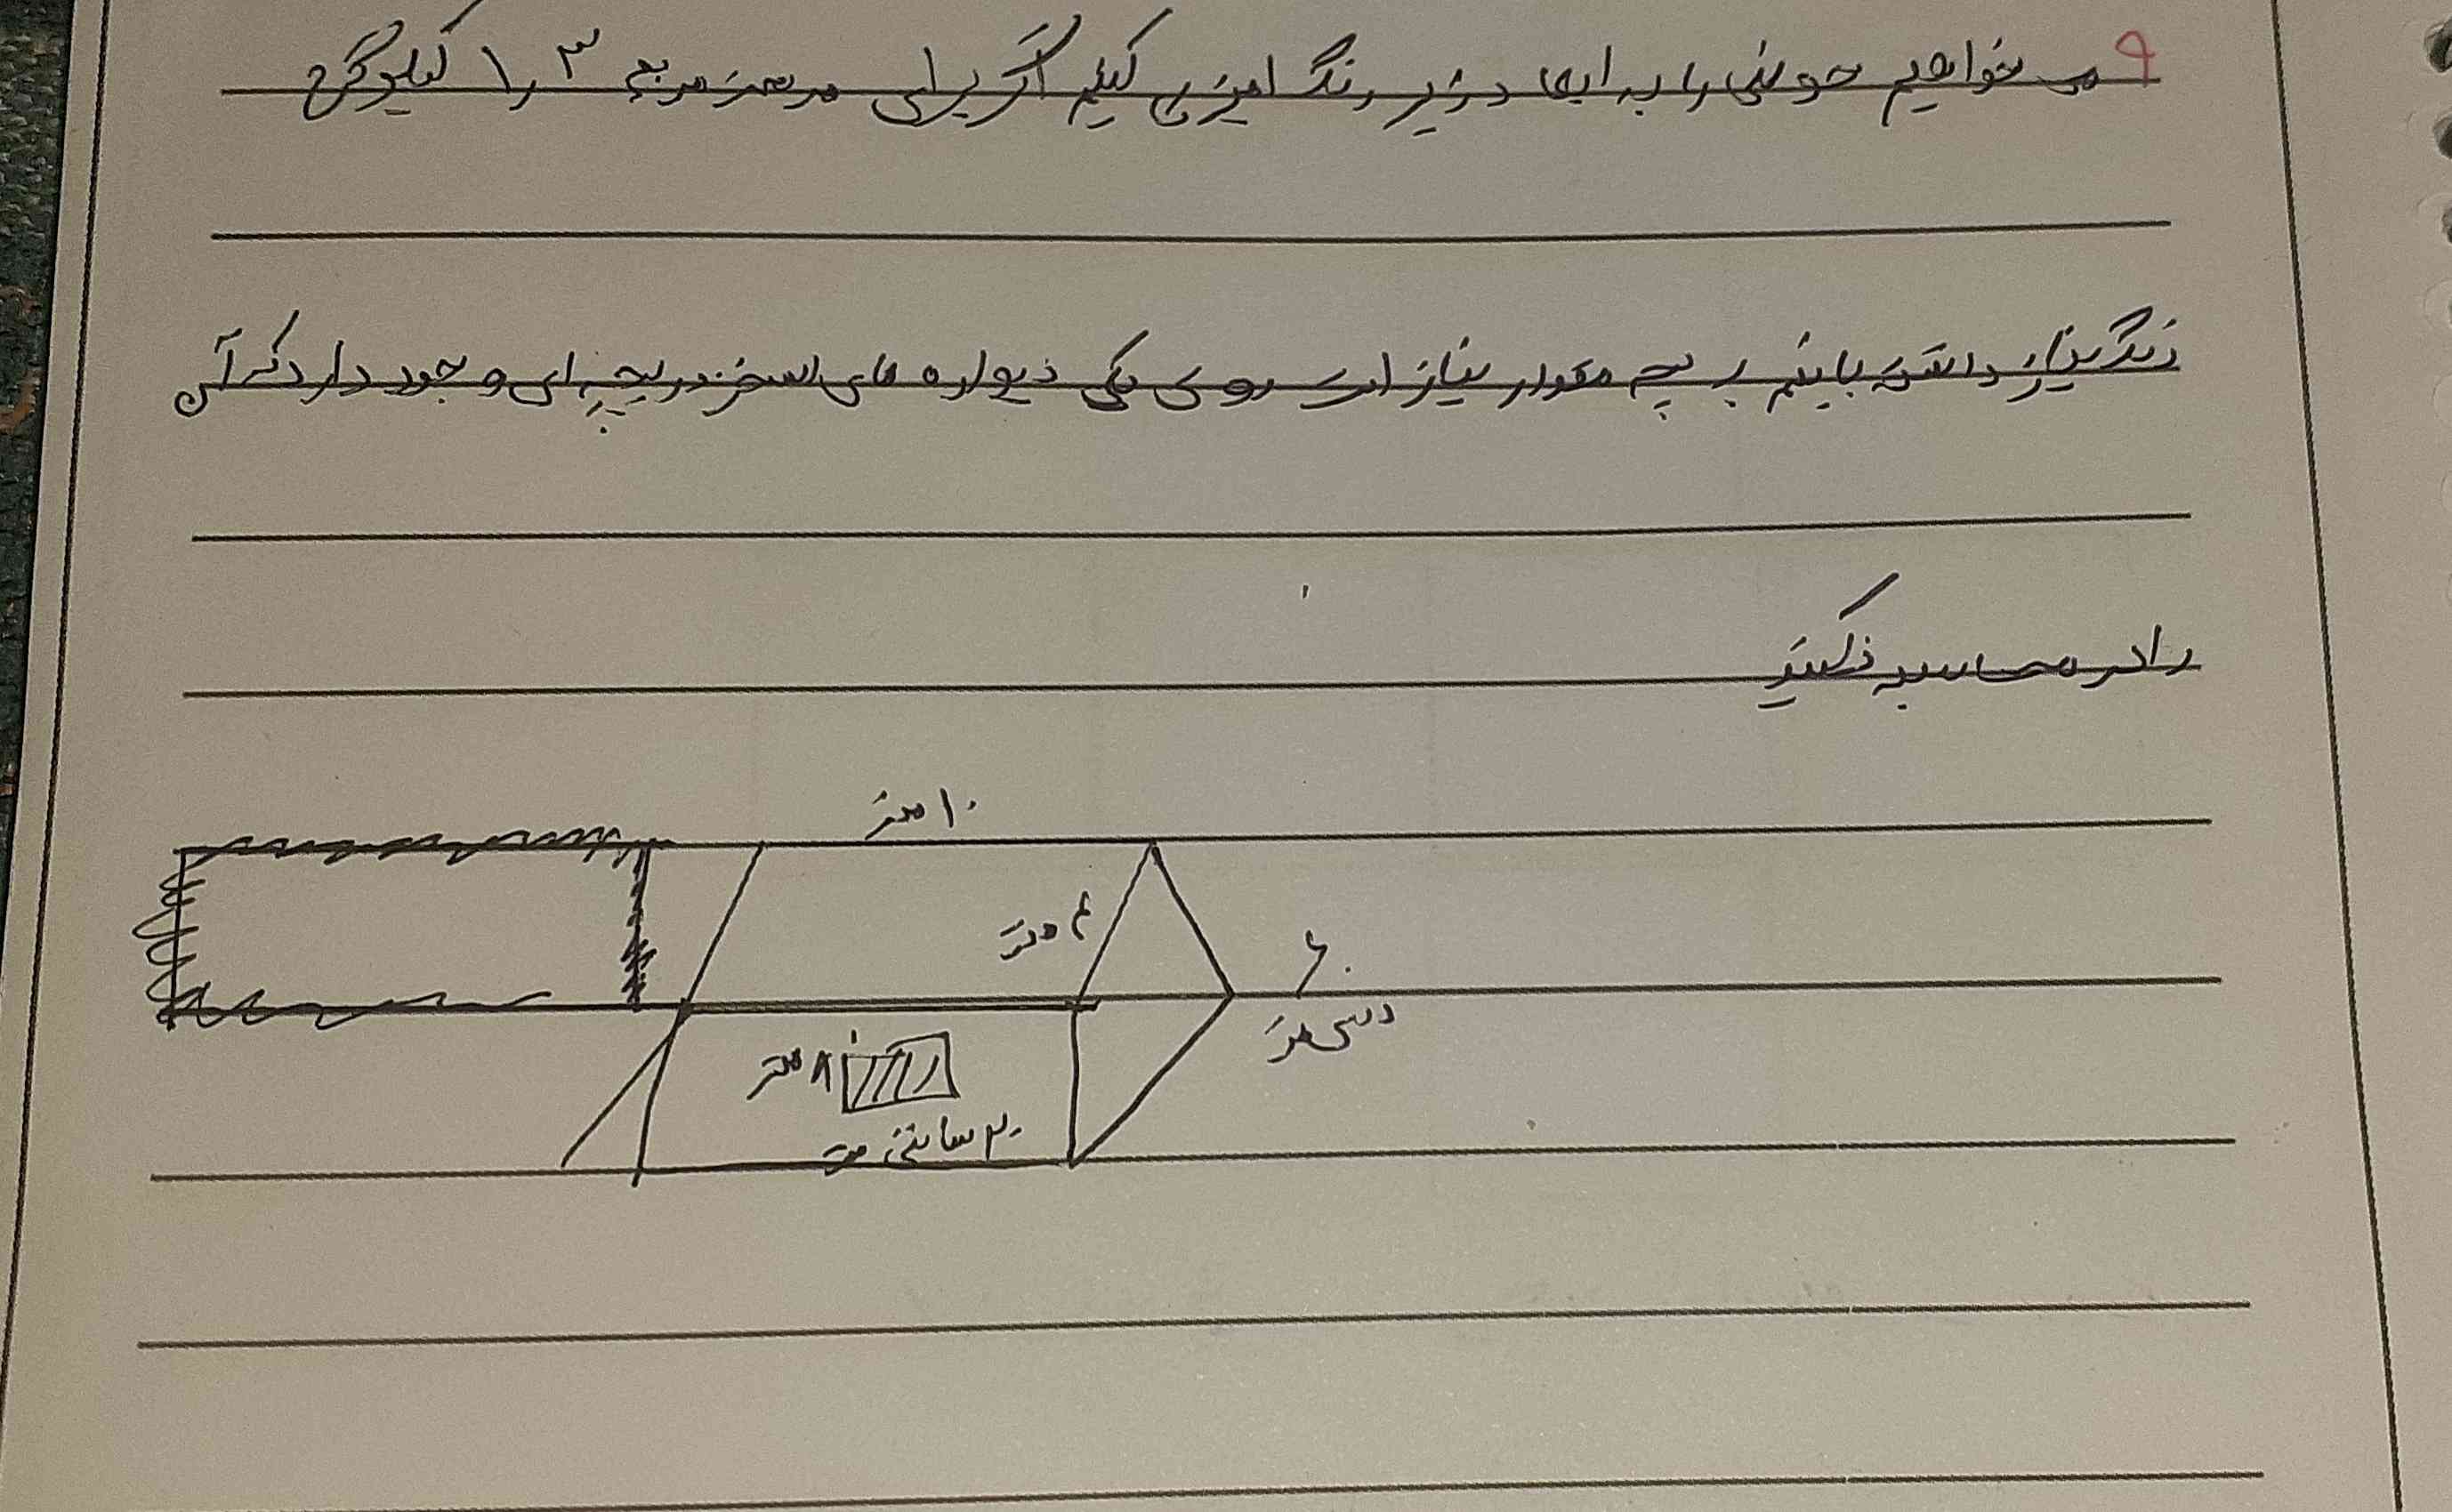 ۹ می خواهیم حوضی را به ابعاد زیر رنگ امیزی کنیم اگر برای هر متر مربع ۱٫۳ کیلوگرم
رنگ نیاز داشته باشیم به چه مقدار نیاز است روی یکی دیواره های استخر دریچه ای وجود دارد که آن
را در محاسبه نکنید
۱۰ متر
۴ متر
۶۰
دسی متر
۸ متر
۳۰ سانتی متر